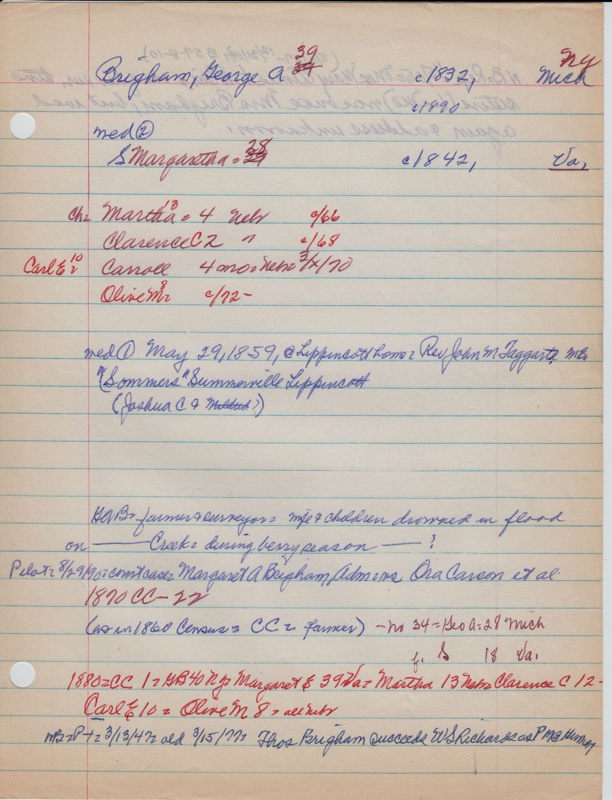 39
Brigham, George A 39 c1832, Mich NY
c1890
med ②
28
S Margaretha = 29 c1842, Va,
ch = Martha 8 = 4 Nebr c/66
Clarence C 2 " c/68
Carl E = 10 Carroll 4 mos = Nebr 3/x/70
Olive M = 8 c/72 -
med ① May 29, 1859, @ Lippincott home = Rev John M Taggart = ME
"(Sommers" Summerville Lippincott
(Joshua C & Mildred?)
GAB = farmer & surveyor = wife & children drowned in flood
on ——— Creek = during berry season —— ?
Pilot = 8/29/90 = court case = Margaret A Brigham, Adm = vs Ora Carson et al
1870 CC - 22
(as in 1860 Census = CC = farmer) - no 34 = Geo A = 28 Mich
f. S 18 Va.
1880 = CC 1 = GB 40 NY = Margaret E 39 Va = Martha 13 Nebr = Clarence C 12 -
Carl E 10 = Olive M 8 = all Nebr
NB = P + = 3/13/47 = old 3/15/77 = Thos Brigham succeeds WS Richards as PM @